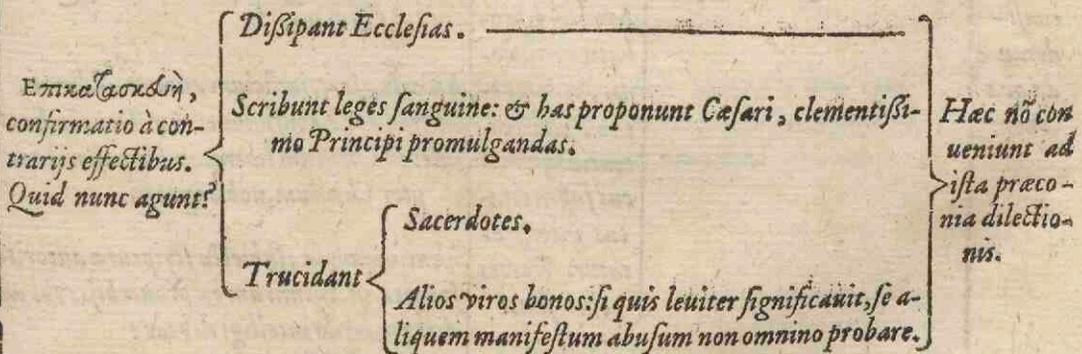 Επικατασκευὴ,
confirmatio à con-
trarijs effectibus.
Quid nunc agunt?
Dißipant Eccleſias.
Scribunt leges ſanguine: & has proponunt Cæſari, clementißi-
mo Principi promulgandas.
Trucidant
Sacerdotes.
Alios viros bonos: ſi quis leuiter ſignificauit, ſe a-
liquem manifeſtum abuſum non omnino probare.
Hæc nō con
ueniunt ad
iſta præco-
nia dilectio-
nis.